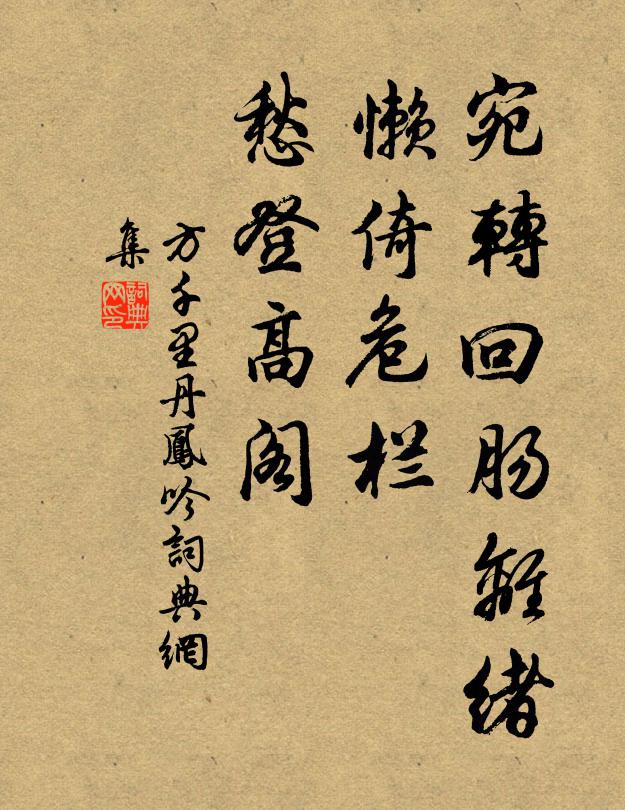 宛轉回肠離緒
懶倚危栏
愁登高阁
方千里丹鳳吟詞典網
集
詞典
网印